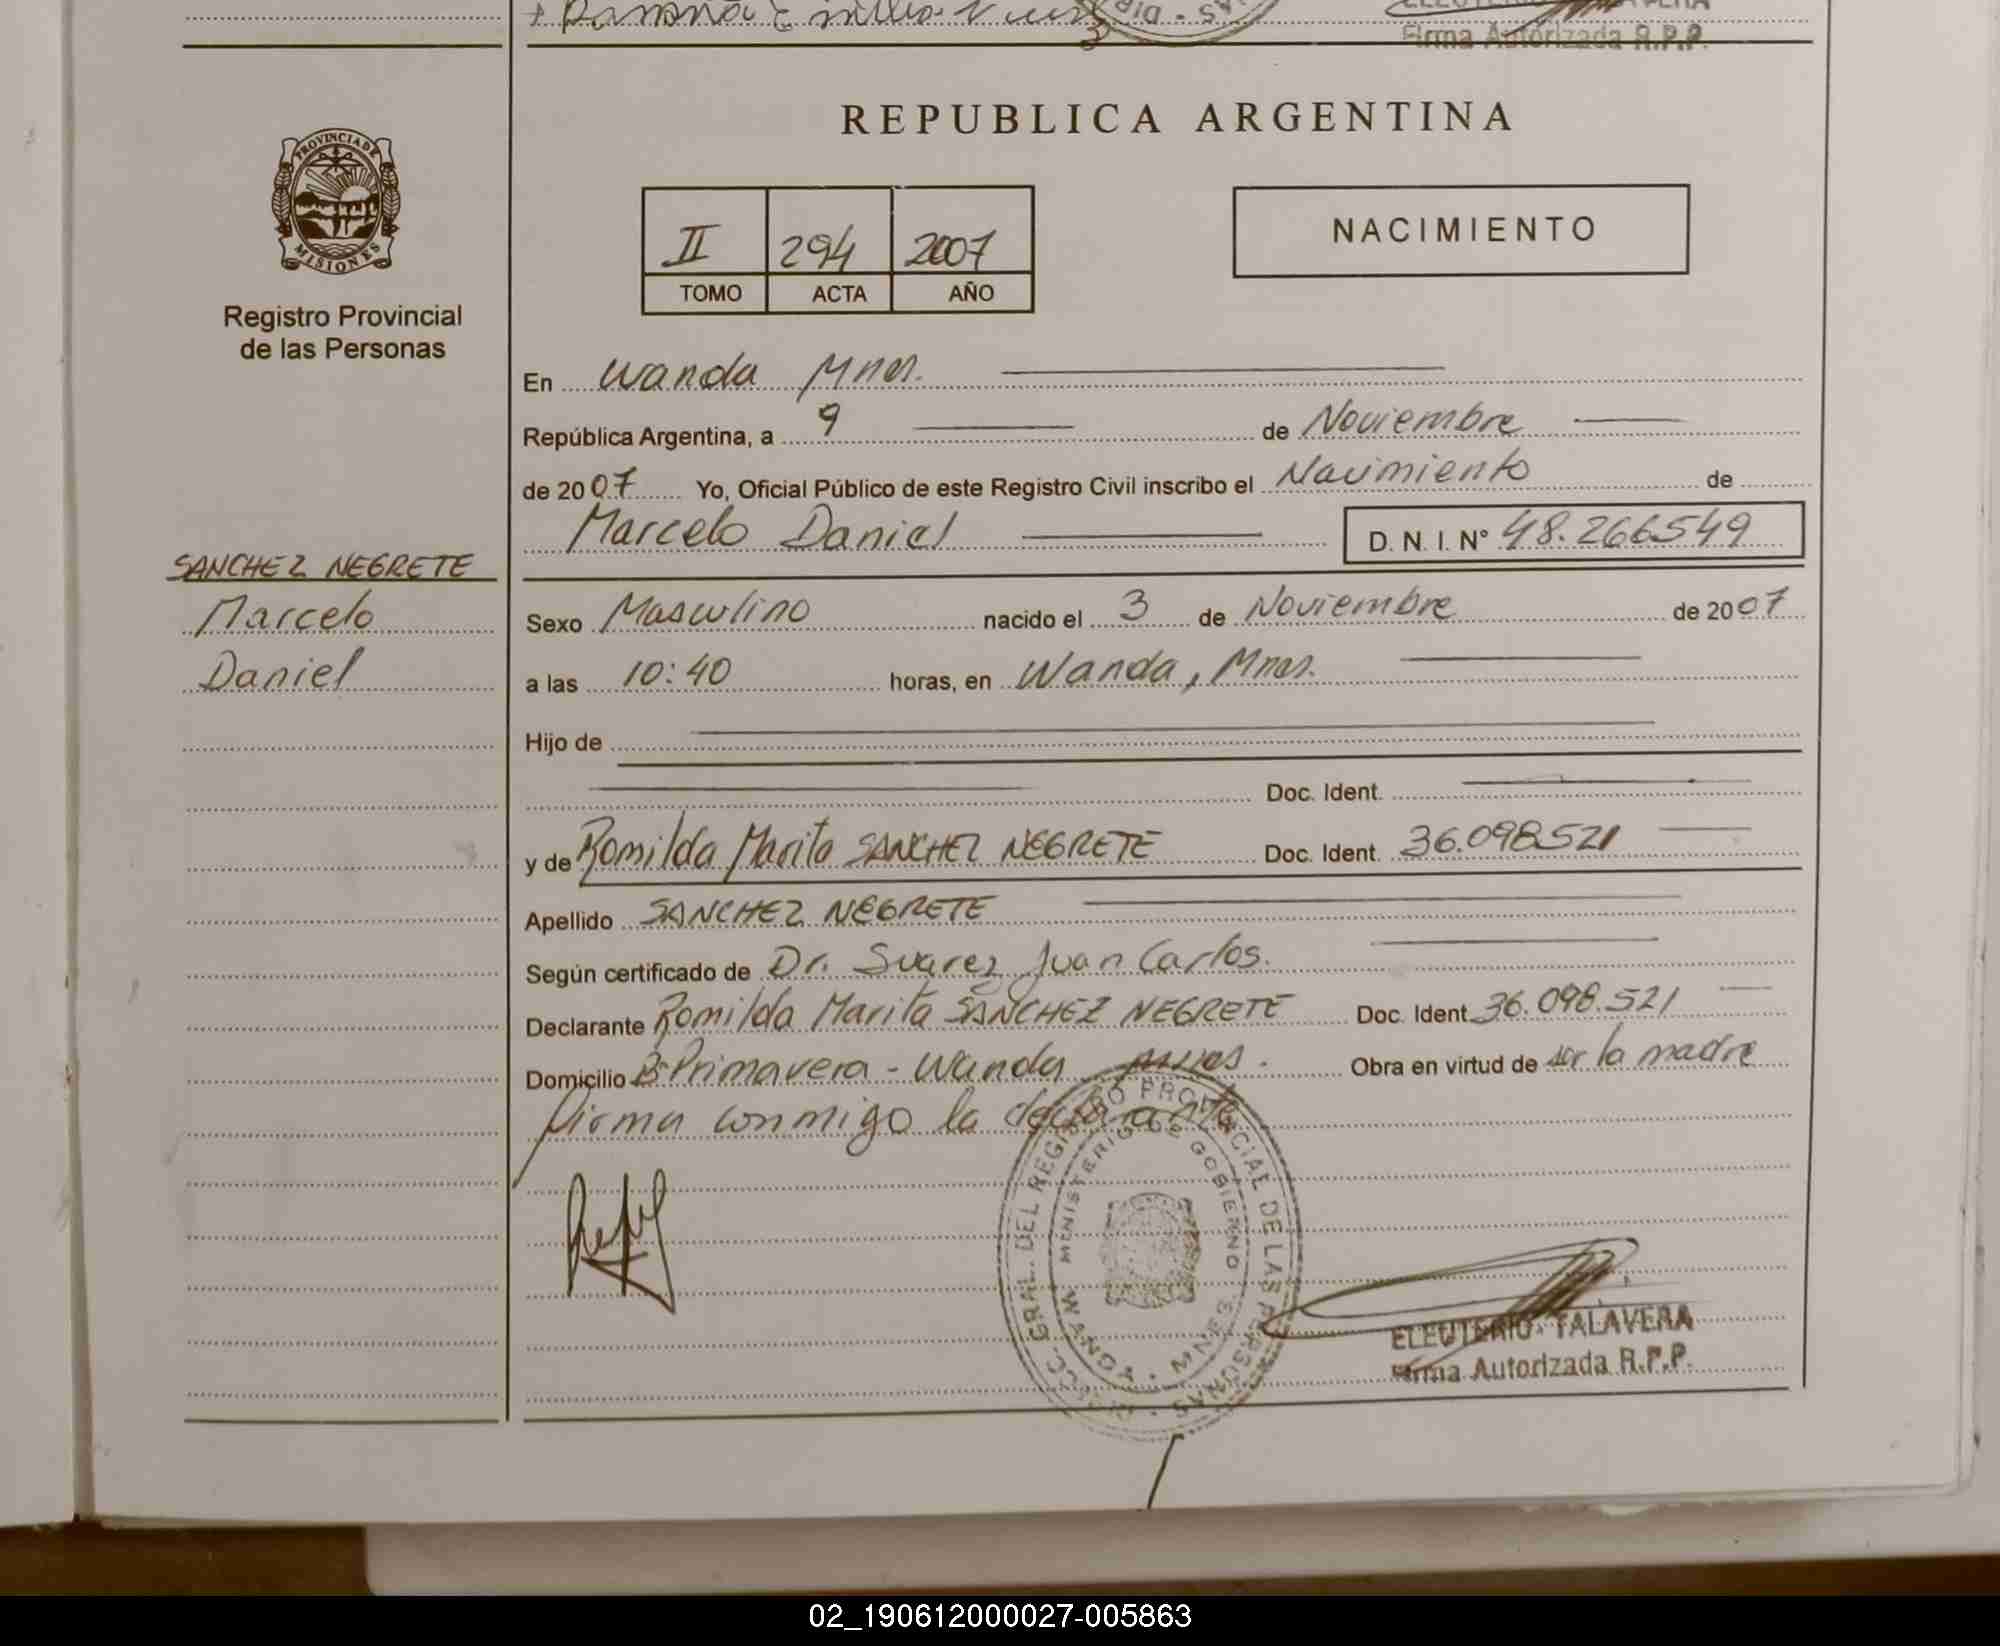 Firma Autorizada R.P.P.
REPUBLICA ARGENTINA
PROVINCIA DE
MISIONES
Registro Provincial
de las Personas
II 294 2007
TOMO ACTA AÑO
NACIMIENTO
En Wanda Mnes.
República Argentina, a 9 de Noviembre
de 2007 Yo, Oficial Público de este Registro Civil inscribo el Nacimiento de
Marcelo Daniel D. N. I. N° 48.266549
SANCHEZ NEGRETE
Marcelo
Daniel
Sexo Masculino nacido el 3 de Noviembre de 2007
a las 10:40 horas, en Wanda, Mnes.
Hijo de
Doc. Ident.
y de Romilda Marita SANCHEZ NEGRETE Doc. Ident. 36.098.521
Apellido SANCHEZ NEGRETE
Según certificado de Dr. Suarez Juan Carlos.
Declarante Romilda Marita SANCHEZ NEGRETE Doc. Ident. 36.098.521
Domicilio B° Primavera - Wanda Mnes. Obra en virtud de ser la madre
Firma conmigo la declarante
GRAL. DEL REGISTRO PROVINCIAL DE LAS PERSONAS
MINISTERIO DE GOBIERNO
WANDA
ELEUTERIO TALAVERA
Firma Autorizada R.P.P.
02_190612000027-005863